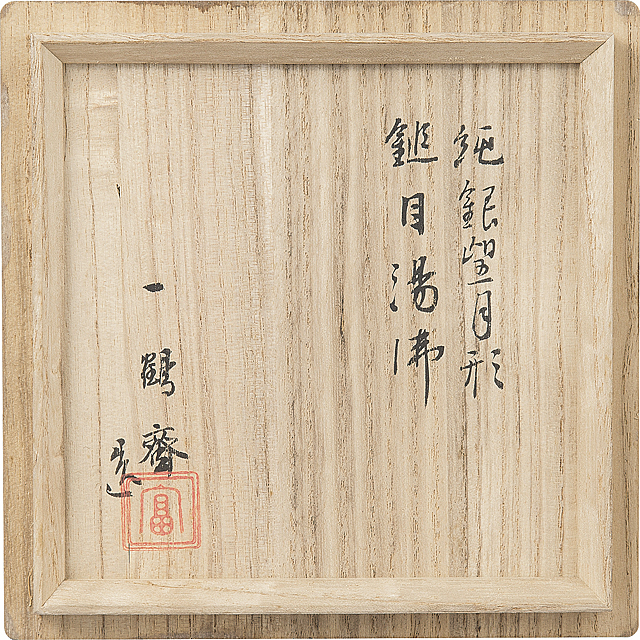 純銀望月形
鎚目湯沸
一鶴齋
造
富